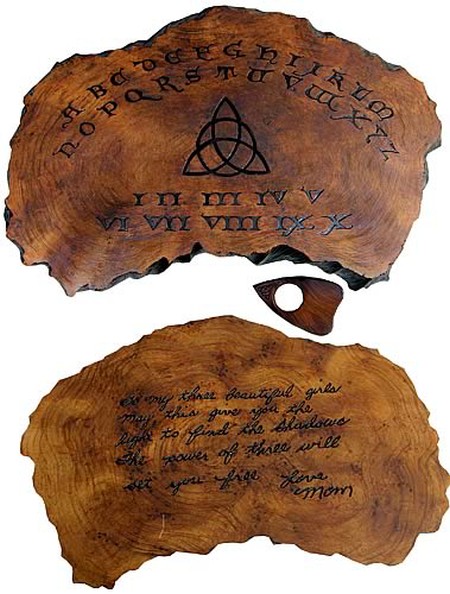 A B C D E F G H I J K L M
N O P Q R S T U V W X Y Z
I II III IV V
VI VII VIII IX X
To my three beautiful girls
May this give you the
light to find the shadows
The power of three will
set you free Love
Mom